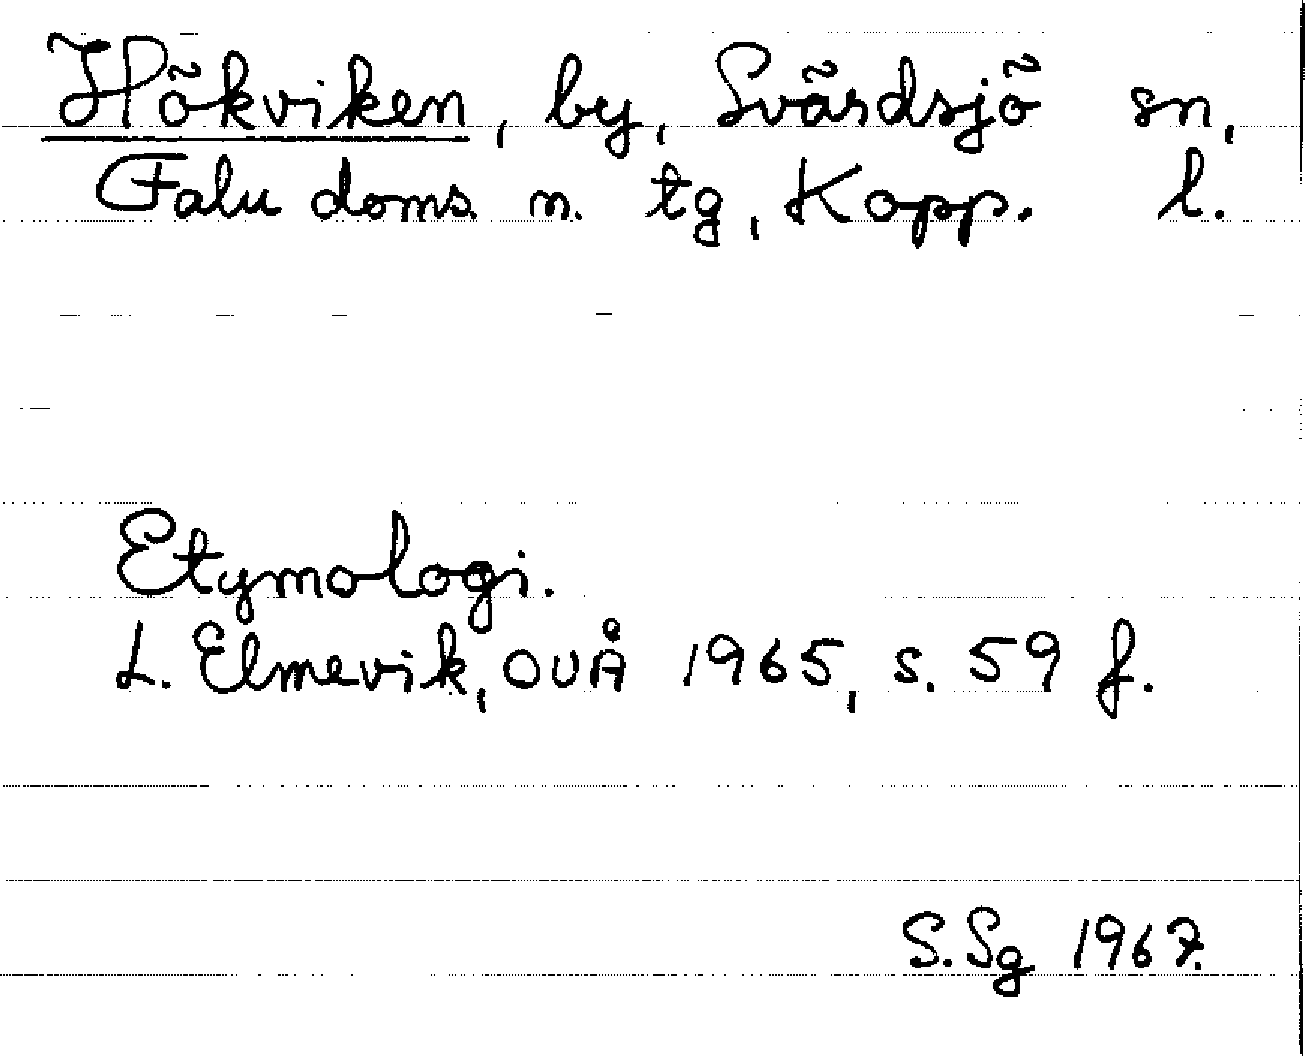 Hökviken, by, Svärdsjö sn,
Falu doms. n. tg, Kopp. l.
Etymologi.
L. Elmevik, OUÅ 1965, s. 59 f.
S. Sg 1967.